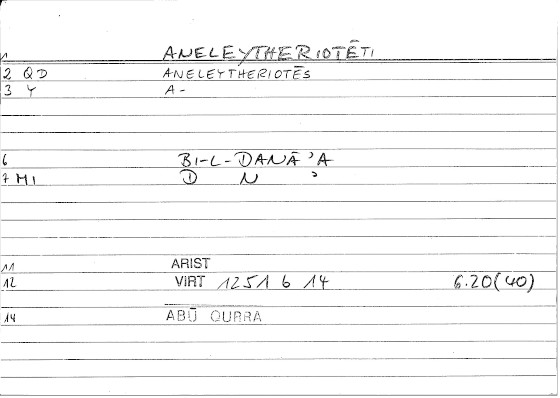 1 ANELEYTHERIOTĒTI
2 QD ANELEYTHERIOTĒS
3 Y A-
6 BI-L-DANĀ'A
7 MI D N '
11 ARIST
12 VIRT 1251 b 14 6.20(40)
14 ABŪ QURRA